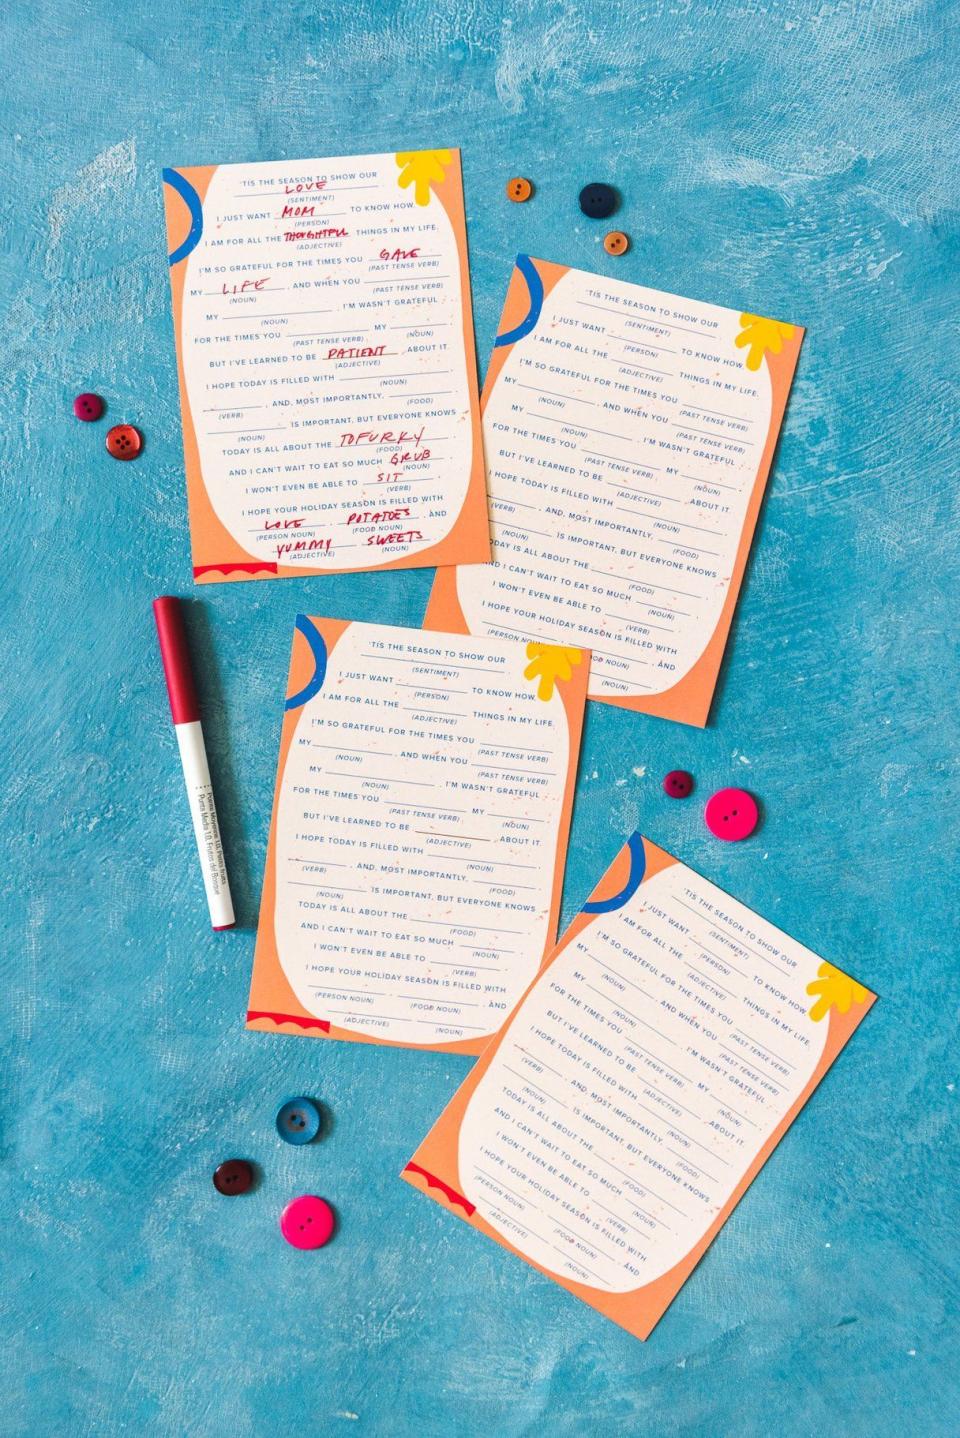 'TIS THE SEASON TO SHOW OUR
LOVE
(SENTIMENT)
I JUST WANT MOM TO KNOW HOW
(PERSON)
I AM FOR ALL THE THOUGHTFUL THINGS IN MY LIFE.
(ADJECTIVE)
I'M SO GRATEFUL FOR THE TIMES YOU GAVE
(PAST TENSE VERB)
MY LIFE, AND WHEN YOU
(NOUN) (PAST TENSE VERB)
MY , I'M WASN'T GRATEFUL
(NOUN)
FOR THE TIMES YOU MY
(PAST TENSE VERB) (NOUN)
BUT I'VE LEARNED TO BE PATIENT ABOUT IT.
(ADJECTIVE)
I HOPE TODAY IS FILLED WITH
(NOUN)
, AND, MOST IMPORTANTLY,
(VERB) (FOOD)
IS IMPORTANT, BUT EVERYONE KNOWS
(NOUN)
TODAY IS ALL ABOUT THE TOFURKY
(FOOD)
AND I CAN'T WAIT TO EAT SO MUCH GRUB
(NOUN)
I WON'T EVEN BE ABLE TO SIT
(VERB)
I HOPE YOUR HOLIDAY SEASON IS FILLED WITH
LOVE , POTATOES , AND
(PERSON NOUN) (FOOD NOUN)
YUMMY SWEETS
(ADJECTIVE) (NOUN)
'TIS THE SEASON TO SHOW OUR
(SENTIMENT)
I JUST WANT TO KNOW HOW
(PERSON)
I AM FOR ALL THE THINGS IN MY LIFE.
(ADJECTIVE)
I'M SO GRATEFUL FOR THE TIMES YOU
(PAST TENSE VERB)
MY , AND WHEN YOU
(NOUN) (PAST TENSE VERB)
MY , I'M WASN'T GRATEFUL
(NOUN)
FOR THE TIMES YOU MY
(PAST TENSE VERB) (NOUN)
BUT I'VE LEARNED TO BE ABOUT IT.
(ADJECTIVE)
I HOPE TODAY IS FILLED WITH
(NOUN)
, AND, MOST IMPORTANTLY,
(VERB) (FOOD)
IS IMPORTANT, BUT EVERYONE KNOWS
(NOUN)
TODAY IS ALL ABOUT THE
(FOOD)
AND I CAN'T WAIT TO EAT SO MUCH
(NOUN)
I WON'T EVEN BE ABLE TO
(VERB)
I HOPE YOUR HOLIDAY SEASON IS FILLED WITH
, AND
(PERSON NOUN
(NOUN)
'TIS THE SEASON TO SHOW OUR
(SENTIMENT)
I JUST WANT TO KNOW HOW
(PERSON)
I AM FOR ALL THE THINGS IN MY LIFE.
(ADJECTIVE)
I'M SO GRATEFUL FOR THE TIMES YOU
(PAST TENSE VERB)
MY , AND WHEN YOU
(NOUN) (PAST TENSE VERB)
MY , I'M WASN'T GRATEFUL
(NOUN)
FOR THE TIMES YOU MY
(PAST TENSE VERB) (NOUN)
BUT I'VE LEARNED TO BE ABOUT IT.
(ADJECTIVE)
I HOPE TODAY IS FILLED WITH
(NOUN)
, AND, MOST IMPORTANTLY,
(VERB) (FOOD)
IS IMPORTANT, BUT EVERYONE KNOWS
(NOUN)
TODAY IS ALL ABOUT THE
(FOOD)
AND I CAN'T WAIT TO EAT SO MUCH
(NOUN)
I WON'T EVEN BE ABLE TO
(VERB)
I HOPE YOUR HOLIDAY SEASON IS FILLED WITH
, AND
(PERSON NOUN) (FOOD NOUN)
(ADJECTIVE) (NOUN)
'TIS THE SEASON TO SHOW OUR
(SENTIMENT)
I JUST WANT TO KNOW HOW
(PERSON)
I AM FOR ALL THE THINGS IN MY LIFE.
(ADJECTIVE)
I'M SO GRATEFUL FOR THE TIMES YOU
(PAST TENSE VERB)
MY , AND WHEN YOU
(NOUN) (PAST TENSE VERB)
MY , I'M WASN'T GRATEFUL
(NOUN)
FOR THE TIMES YOU MY
(PAST TENSE VERB) (NOUN)
BUT I'VE LEARNED TO BE ABOUT IT.
(ADJECTIVE)
I HOPE TODAY IS FILLED WITH
(NOUN)
, AND, MOST IMPORTANTLY,
(VERB) (FOOD)
IS IMPORTANT, BUT EVERYONE KNOWS
(NOUN)
TODAY IS ALL ABOUT THE
(FOOD)
AND I CAN'T WAIT TO EAT SO MUCH
(NOUN)
I WON'T EVEN BE ABLE TO
(VERB)
I HOPE YOUR HOLIDAY SEASON IS FILLED WITH
, AND
(PERSON NOUN) (FOOD NOUN)
(ADJECTIVE) (NOUN)